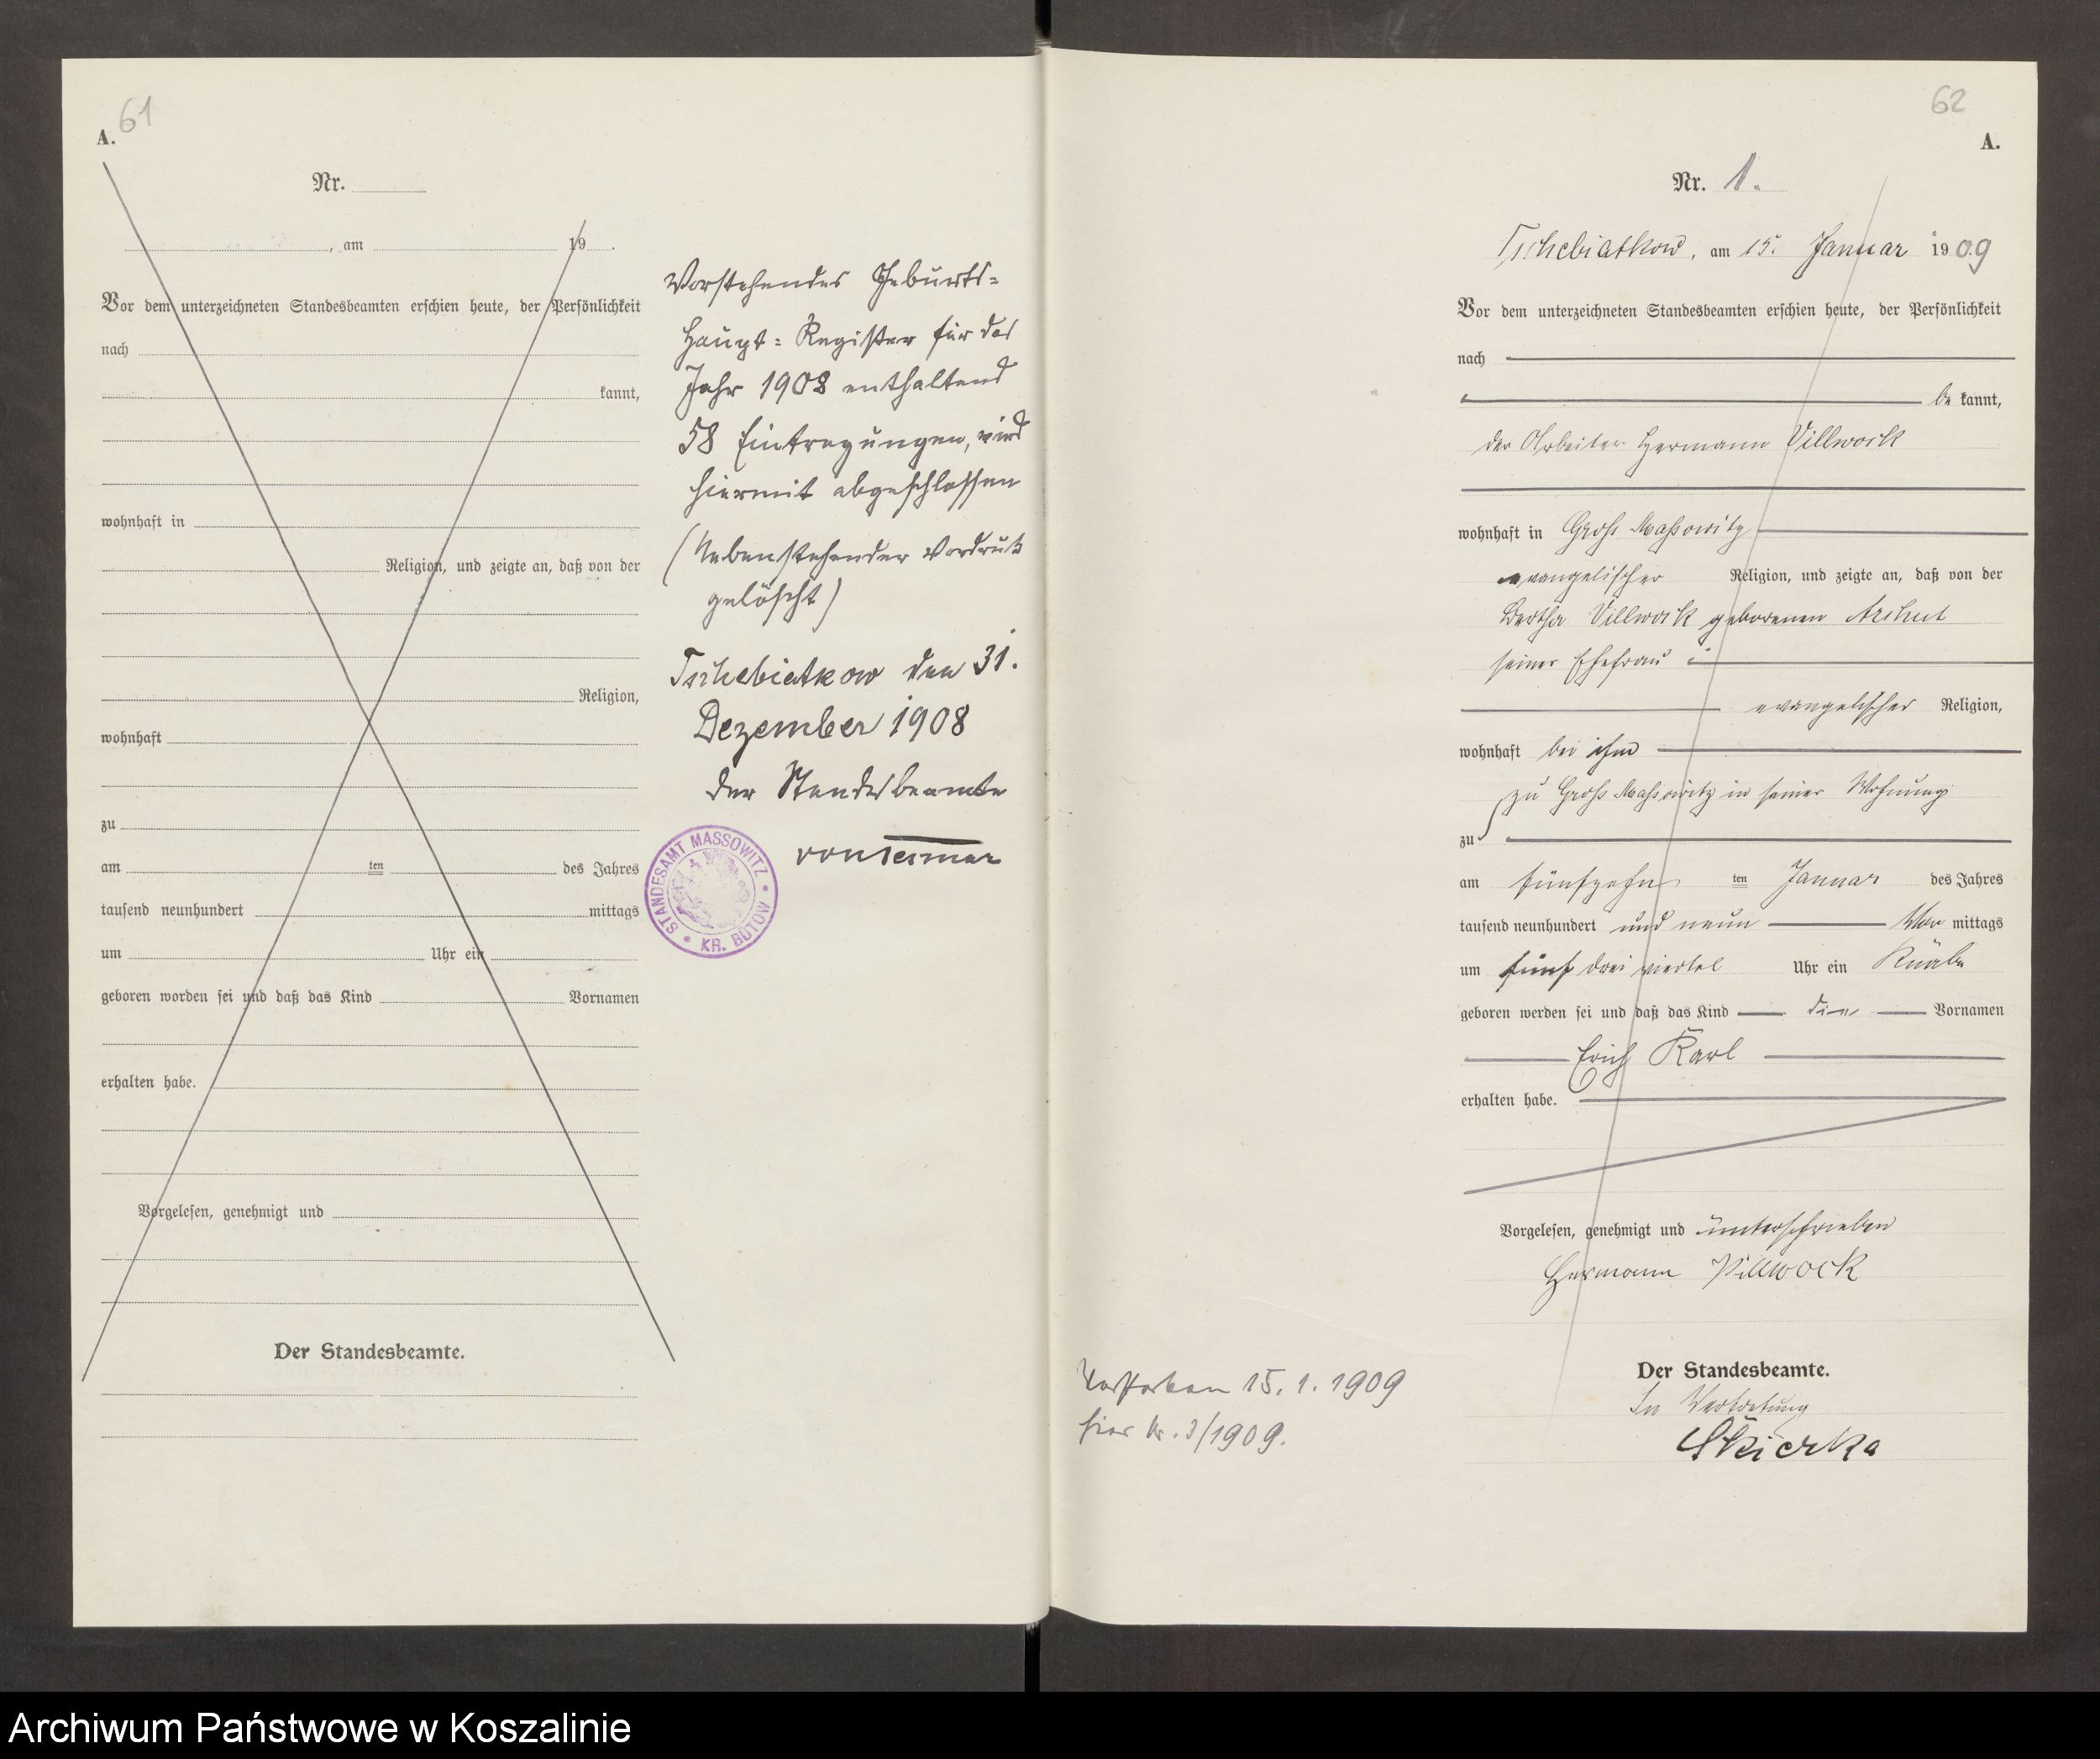 61
A.
Nr.
, am 19 .
Vor dem unterzeichneten Standesbeamten erschien heute, der Persönlichkeit
nach
kannt,
wohnhaft in
Religion, und zeigte an, daß von der
Religion,
wohnhaft
zu
am ten des Jahres
tausend neunhundert mittags
um Uhr ein
geboren worden sei und daß das Kind Vornamen
erhalten habe.
Vorgelesen, genehmigt und
Der Standesbeamte.
Vorstehendes Geburts-
Haupt-Register für das
Jahr 1908 enthaltend
58 Eintragungen, wird
hiermit abgeschlossen
(Nebenstehender Vordruck
gelöscht)
Tschebiatkow den 31.
Dezember 1908
Der Standesbeamte
STANDESAMT MASSOWITZ * KR. BÜTOW *
62
A.
Nr. 1.
Tschebiatkow, am 15. Januar 1909
Vor dem unterzeichneten Standesbeamten erschien heute, der Persönlichkeit
nach
be kannt,
der Arbeiter Hermann Villwock
wohnhaft in Groß Massowitz
evangelischer Religion, und zeigte an, daß von der
Bertha Villwock geborenen
seiner Ehefrau
evangelischer Religion,
wohnhaft bei ihm
zu Groß Massowitz in seiner Wohnung
zu
am fünfzehn ten Januar des Jahres
tausend neunhundert und neun Vor mittags
um fünf drei viertel Uhr ein Knabe
geboren werden sei und daß das Kind die Vornamen
Erich Karl
erhalten habe.
Vorgelesen, genehmigt und unterschrieben
Hermann Villwock
Der Standesbeamte.
In Vertretung
Verstorben 15. 1. 1909
hier Nr. 3/1909.
Archiwum Państwowe w Koszalinie